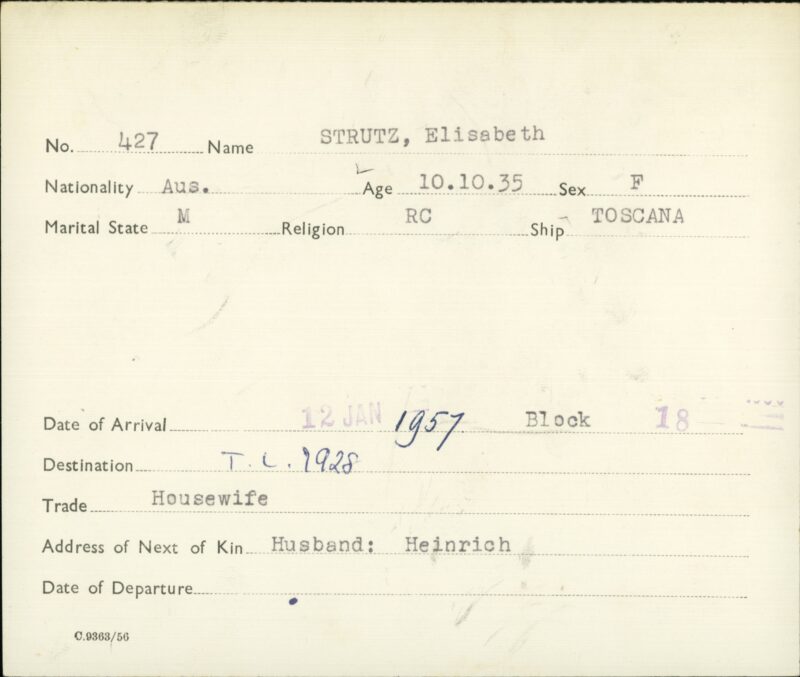 No. 427 Name STRUTZ, Elisabeth
Nationality Aus. Age 10.10.35 Sex F
Marital State M Religion RC Ship TOSCANA
Date of Arrival 12 JAN 1957. Block 18
Destination T. L. 1928
Trade Housewife
Address of Next of Kin Husband: Heinrich
Date of Departure
C.9363/56